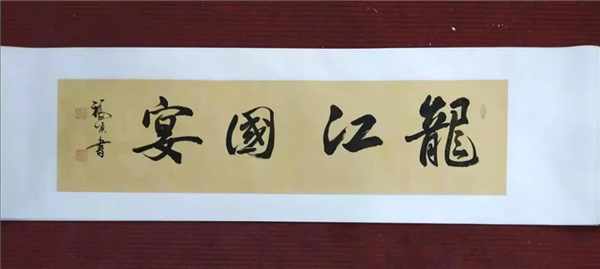 龍江國宴